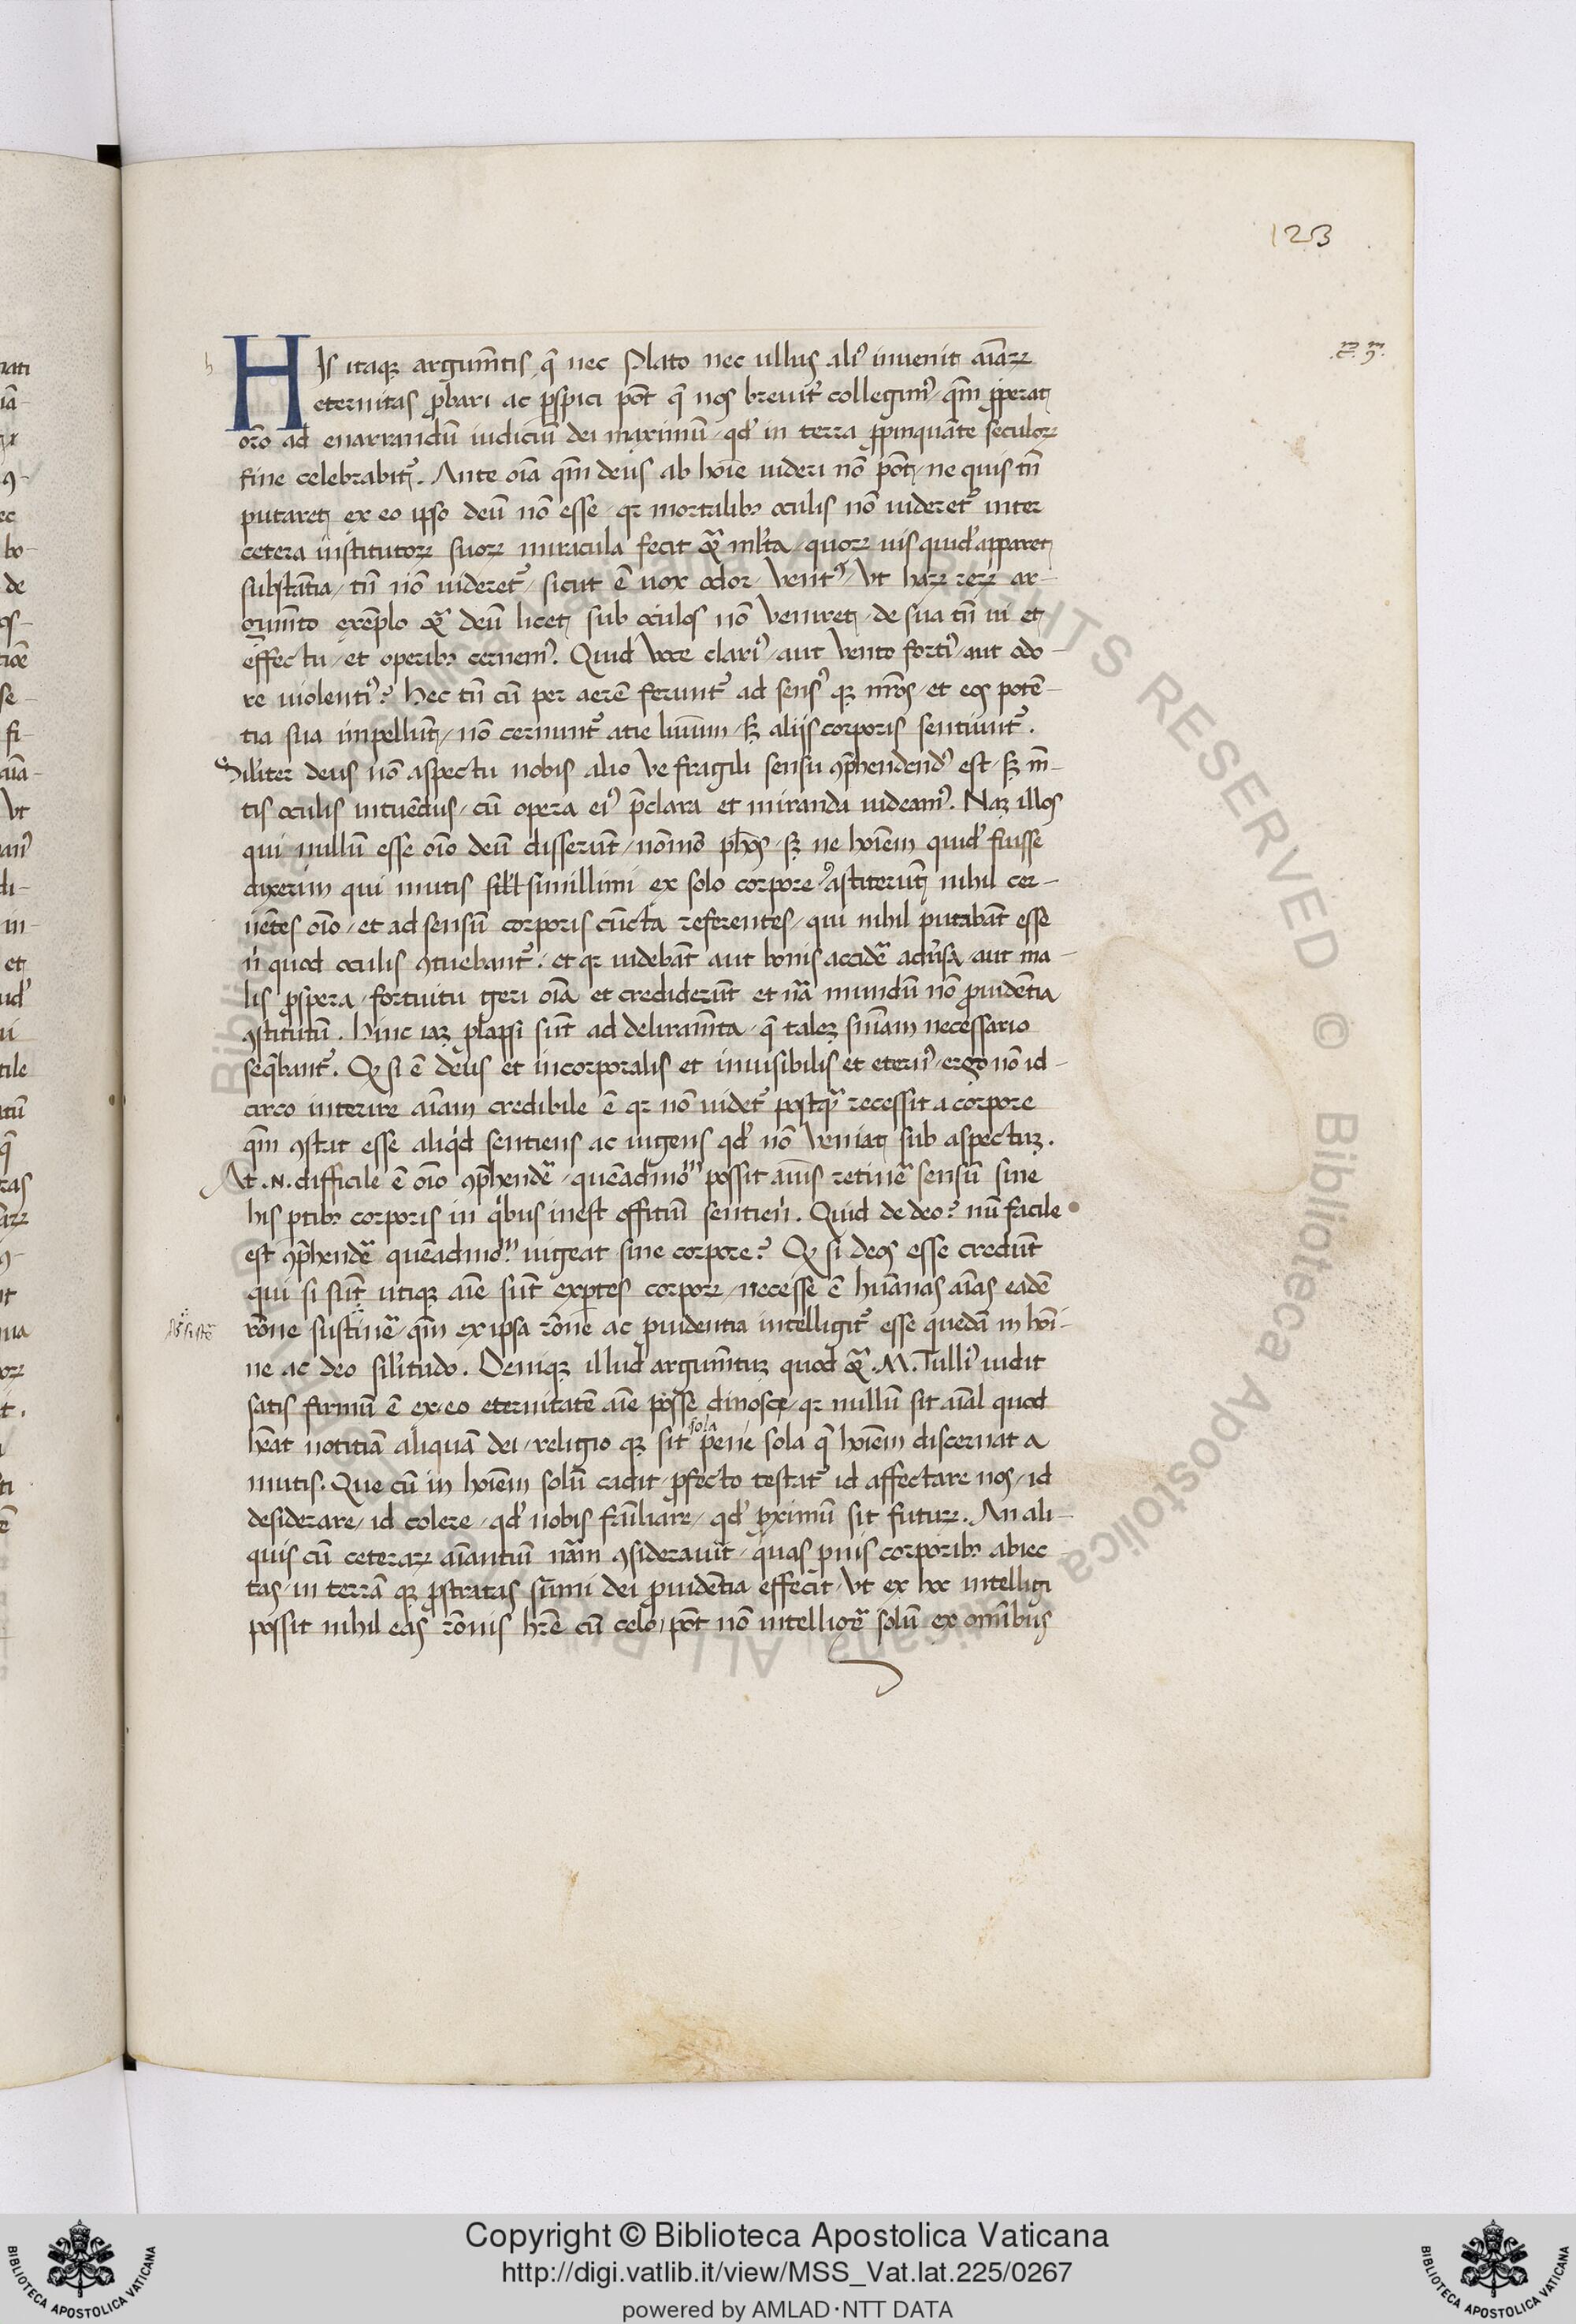 123
.c. 9.
h
HIs itaqꝫ argum̄tis q̄ nec Plato nec ullus aliꝰ invenit aīaꝝ
eternitas ꝓbari ac ꝑspici pōt q̄ nos breuit̾ collegimꝰ / qm̄ ꝓperat
orō ad enarrandū iudiciū dei maximū / qđ in terra ꝓpinquāte seculoꝝ
fine celebrabit̾. Ante oīa qm̄ deus ab hoīe uideri nō pōt / ne quis tn̄
putaret ex eo ipso deū nō esse / qꝛ mortalibꝫ oculis nō uideret̾ inter
cetera institutoꝝ suoꝝ miracula fecit qᷓ ml̄ta / quoꝝ uis quid̓ apparet
substātia / tn̄ nō uideret̾ / sicut ē uox odor / ventꝰ / vt haꝝ reꝝ ar-
gum̄to exēplo qᷓ deū licet sub oculos nō veniret / de sua tn̄ ui et
effectu / et operibꝫ cernemꝰ. Quid voce clariꝰ / aut vento fortiꝰ / aut odo-
re uiolentiꝰ? hec tn̄ cū per aerē ferunt̾ ad sensꝰ qꝫ nr̄os / et eos potē-
tia sua impellūt / nō cernunt̾ atie luīum / sꝫ aliis corporis sentiunt̾.
Sil̓iter deus nō aspectu nobis alio ve fragili sensu ꝯp̄hendendꝰ est / sꝫ m̄-
tis oculis intuēdus / cū opera eiꝰ p̄clara et miranda uideamꝰ. Naꝫ illos
qui nullū esse oīo deū disserūt / nōmō ph̄os / sꝫ ne hoīem quid̓ fuisse
dixerim qui mutis sil̓l simillimi ex solo corpore ꝯstiterūt nihil cer-
nētes oīo / et ad sensū corporis cūcta referentes / qui nihil putabāt esse
n̓ quod oculis ꝯtuebant̾. et qꝛ uidebāt aut bonis accidē̓ adūsa / aut ma-
lis ꝓspera / fortuitu geri oīa et crediderūt et nā mundū nō ꝓuidētia
ꝯstitutū. hinc iaꝫ plapsi sūt ad deliram̄ta / q̄ taleꝫ sn̄iam necessario
seq̄bant̾. Qꝫ si ē deus et incorporalis et inuisibilis et eternꝰ / ergo nō id-
circo interire aīam credibile ē qꝛ nō uidet̾ postqᷓ recessit a corpore
qm̄ ꝯstat esse aliq̓d sentiens ac uigens qđ nō veniat sub aspectuꝫ.
At .N. difficile ē oīo ꝯp̄hendē̓ / quēadmoᵐ possit aīus retinē̓ sensū sine
his ptibꝫ corporis in q̓bus inest offitiū sentien̓. Quid de deo? nū facile
est ꝯp̄hendē̓ quēadmoᵐ uigeat sine corpore? Qꝫ si deos esse credūt
qui si sūt utiqꝫ aīe sūt exꝑtes corpore / necesse ē hūanas aīas eadē
rōne sustinē̓ / qm̄ ex ipsa rōne ac prudentia intelligit̾ esse quedā in hoī-
ne ac deo sil̓itudo. Deniqꝫ illud argum̄tuꝫ quod qᷓ .M. Tulliꝰ uidit
satis firmū ē ex eo eternitatē aīe posse dinosce̓ / qꝛ nullū sit aīal quod
hēat notitiā aliquā dei / religio qꝫ sit sola pene sola q̄ hoīem discernat a
mutis. Que cū in hoīem solū cadit / ꝓfecto testat̾ id affectare nos / id
desiderare / id colere / qđ nobis fāiliare / qđ ꝓximū sit futuꝝ. An ali-
quis cū ceteraꝝ aīantiū nām ꝯsiderauit / quas pnis corporibꝫ abiec-
tas / in terrā qꝫ ꝓstratas sūmi dei ꝓuidētia effecit / vt ex hoc intelligi
possit nihil eas rōnis hr̄e cū celo / pōt nō intellige̓ solū ex omnibus
Copyright © Biblioteca Apostolica Vaticana
http://digi.vatlib.it/view/MSS_Vat.lat.225/0267
powered by AMLAD·NTT DATA
BIBLIOTECA APOSTOLICA VATICANA
BIBLIOTECA APOSTOLICA VATICANA